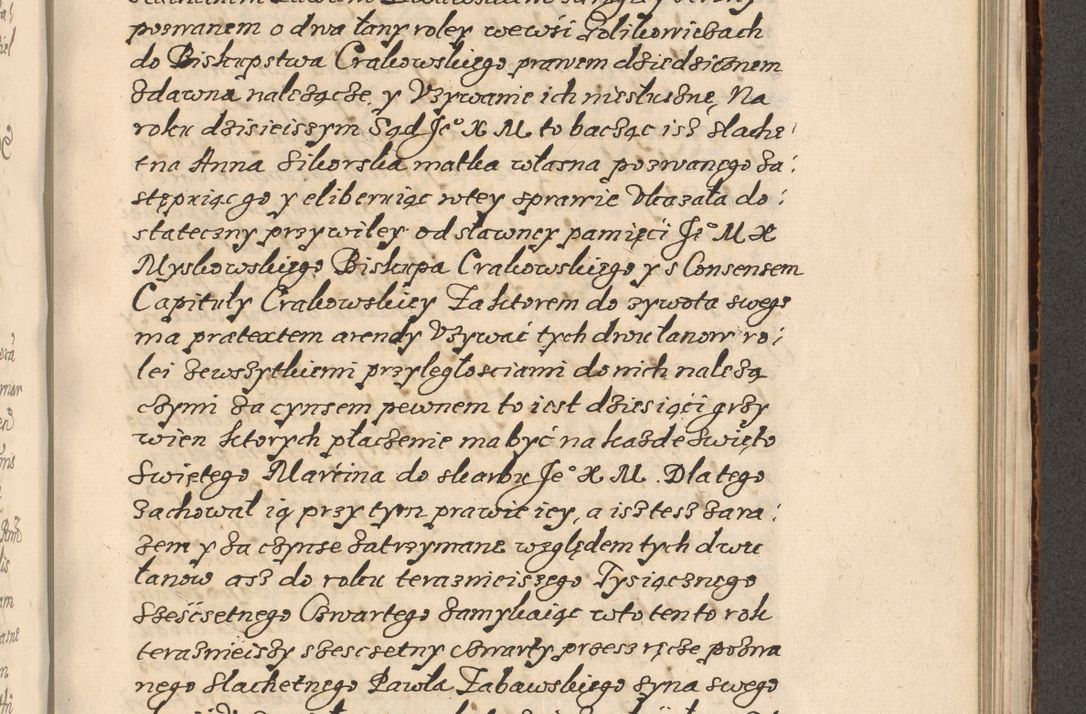 pozwanem o dwa łany roley wewsi Zolikoniebach
do Biskupstwa Crakowskiego prawem dziedzicznem
zdawna należące, y Vzywanie ich niesłuszne, Na
roku dzisieiszym Sąd Je° X M to bacząc isz slache
tna Anna Sikorska matka własna pozwanego za:
stępuiąc go y eliberuiąc wtey sprawie Vkazała do:
stateczny przywiley od sławney pamięći Je° M X
Myskowskiego Biskupa Crakowskiego y s Consensem
Capituły Crakowskiey Zaktorem do zywota swego
ma prætextem arendy Vzywać tych dwu łanow ro:
lei zewszytkiemi przyległosciami do nich należą
czymi za cynsem pewnem to iest dziesiąći grzy
wien ktorych płaczenie ma być na każde święto
Swiętego Marćina do skarbu Je° X M. Dlatego
zachował ią przy tym prawie iey, a isz tesz zara:
zem y za czynse zatrzymane względem tych dwu
łanow asz do roku teraznieiszego Tysiącznego
Szesćsetnego Czwartego zamykaiąc w to ten to rok
teraznieiszy szescsetny czwarty przesz ręcze pozwa
nego Slachetnego Pawła Zabawskiego syna swego